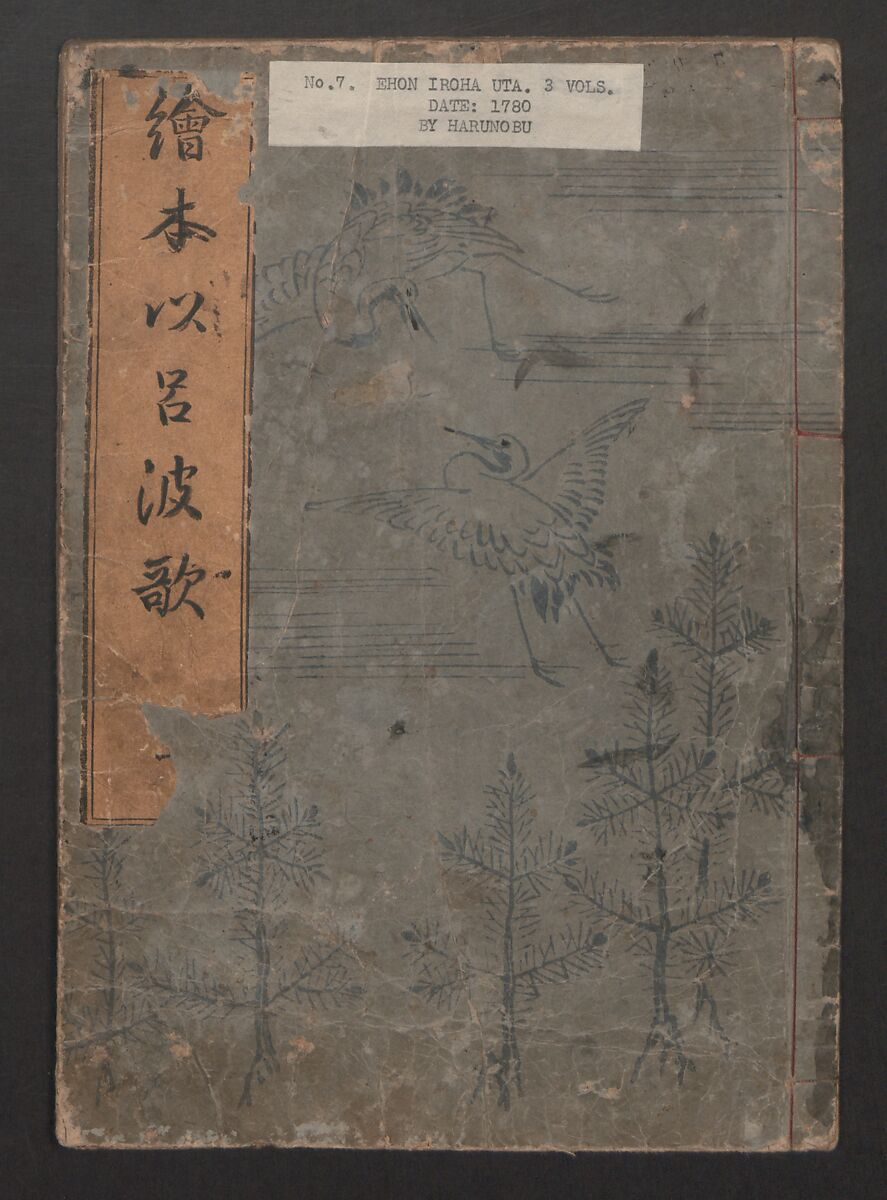 No.7. EHON IROHA UTA. 3 VOLS.
DATE: 1780
BY HARUNOBU
繪本以呂波歌